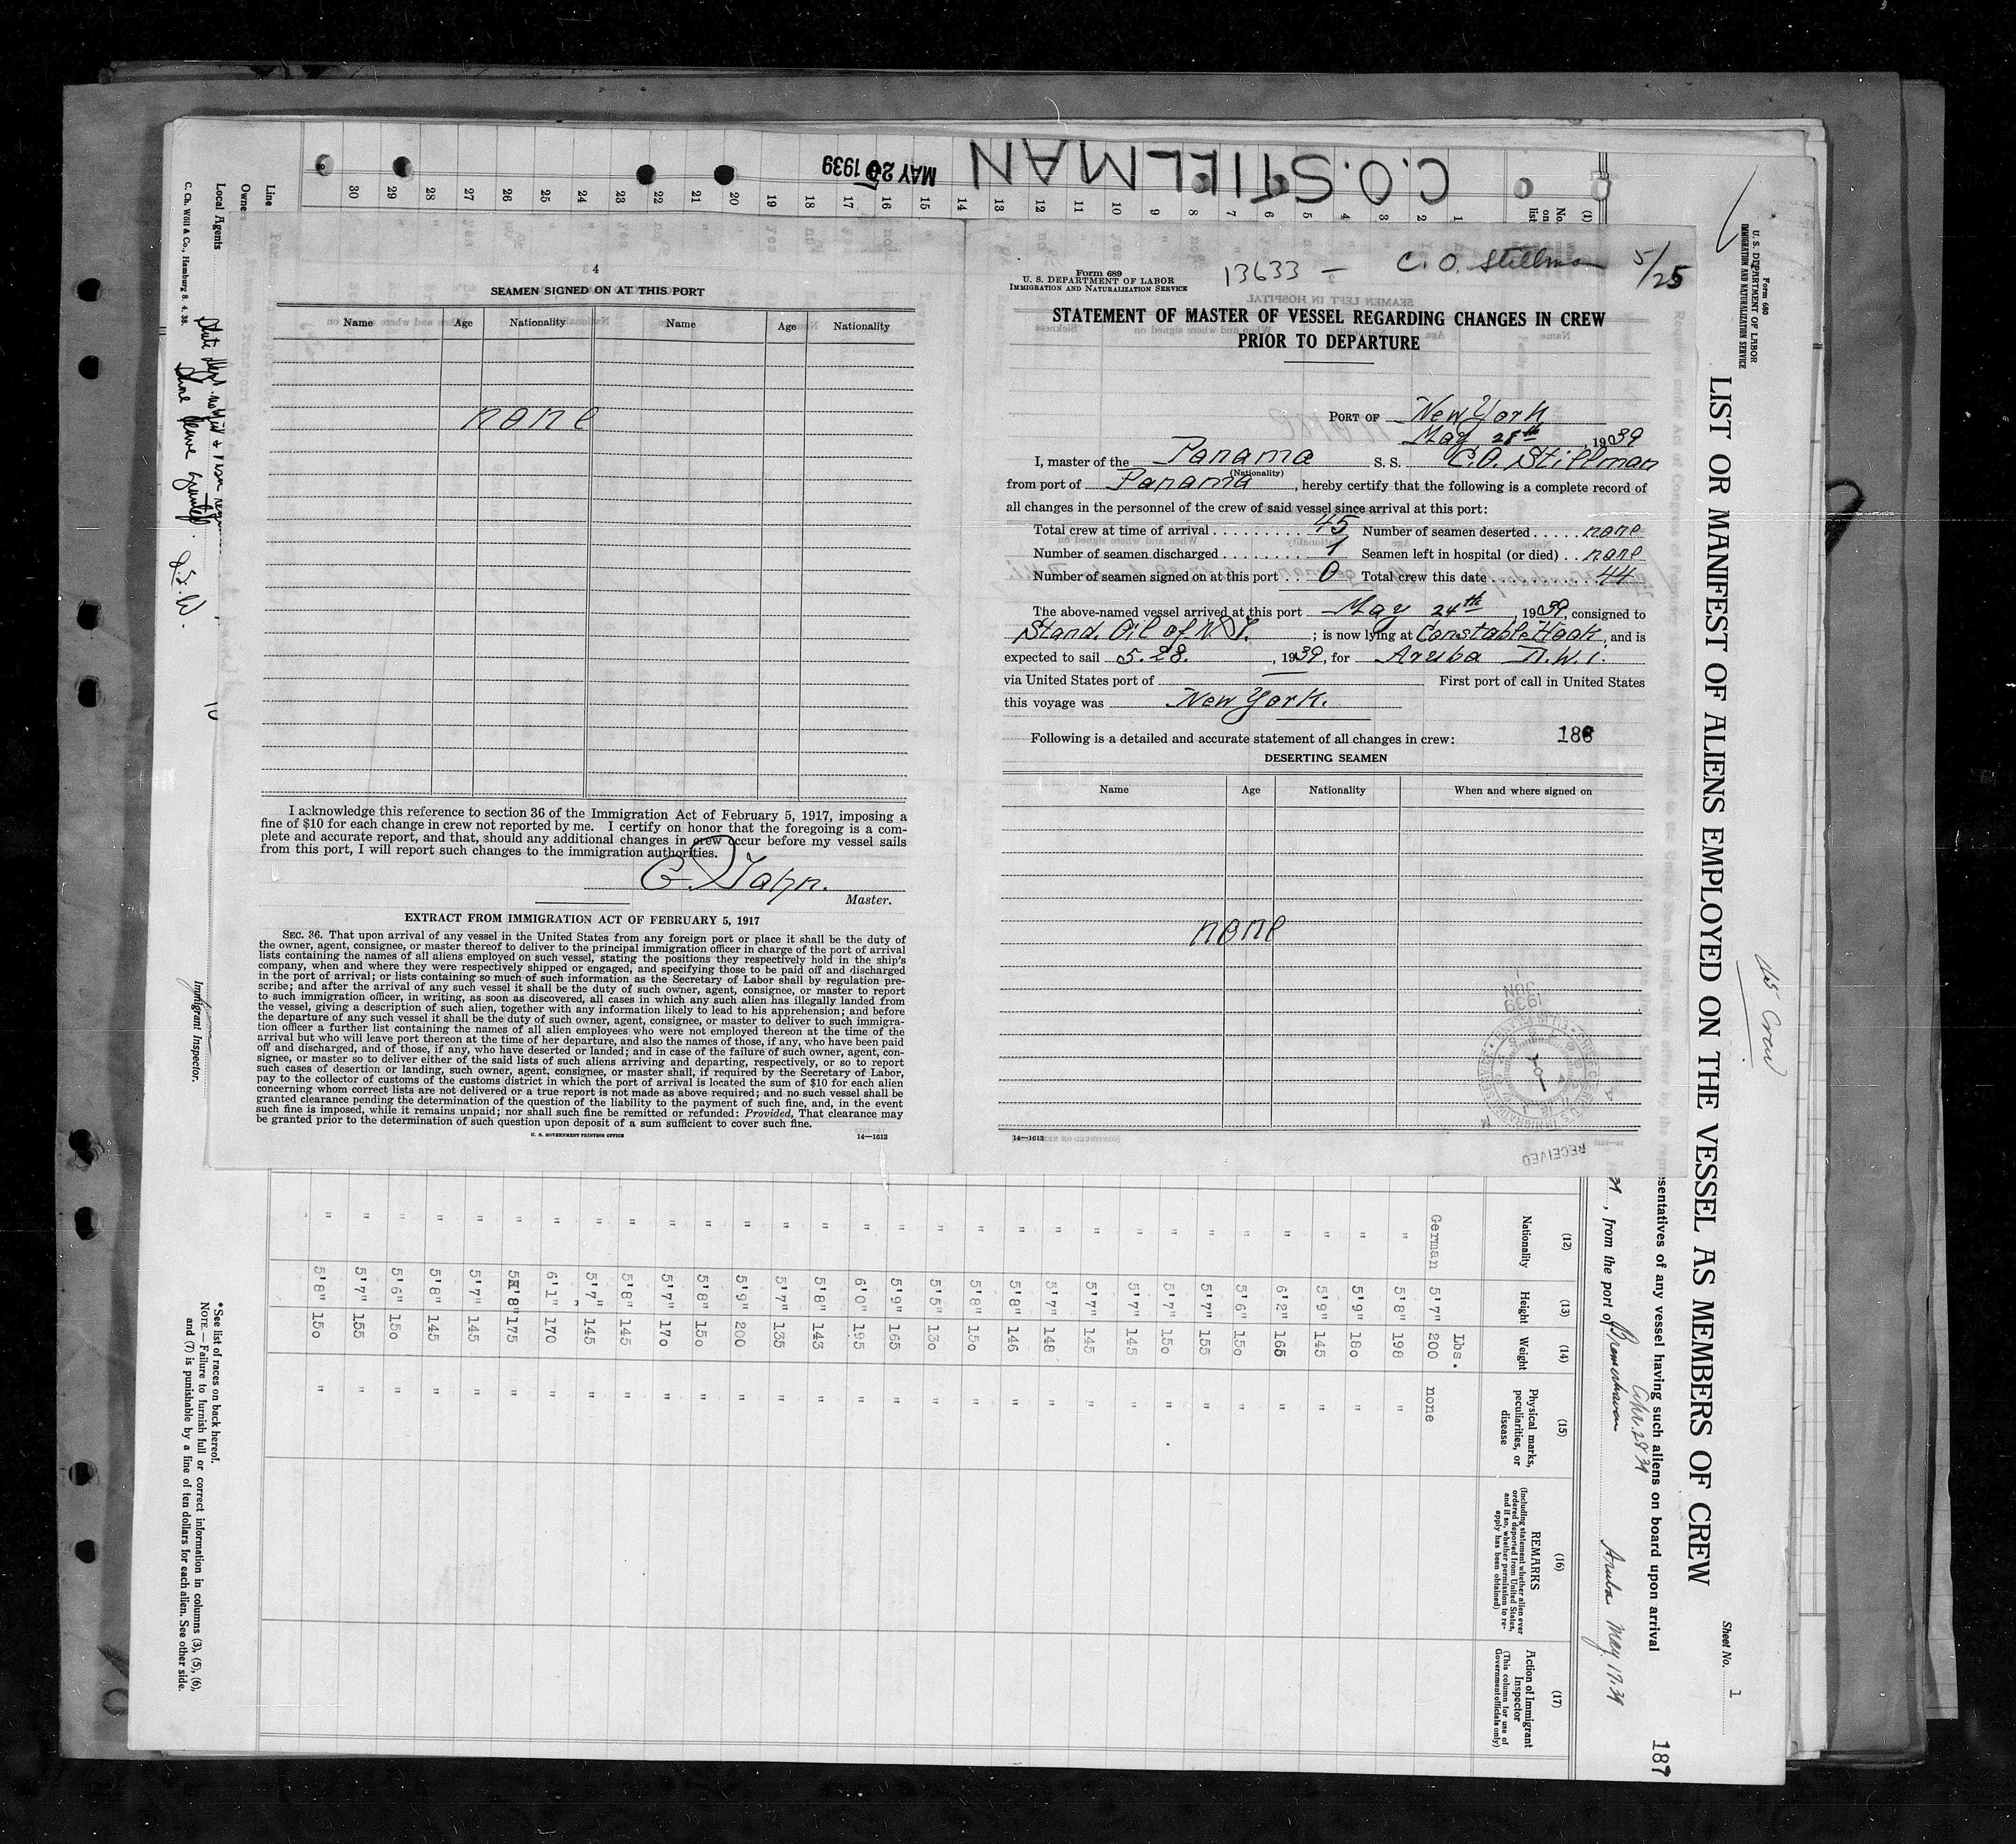 C.O. STILLMAN
MAY 25 1939
4
SEAMEN SIGNED ON AT THIS PORT
Name Age Nationality Name Age Nationality
none
I acknowledge this reference to section 36 of the Immigration Act of February 5, 1917, imposing a
fine of $10 for each change in crew not reported by me. I certify on honor that the foregoing is a com-
plete and accurate report, and that, should any additional changes in crew occur before my vessel sails
from this port, I will report such changes to the immigration authorities.
Master.
EXTRACT FROM IMMIGRATION ACT OF FEBRUARY 5, 1917
SEC. 36. That upon arrival of any vessel in the United States from any foreign port or place it shall be the duty of
the owner, agent, consignee, or master thereof to deliver to the principal immigration officer in charge of the port of arrival
lists containing the names of all aliens employed on such vessel, stating the positions they respectively hold in the ship's
company, when and where they were respectively shipped or engaged, and specifying those to be paid off and discharged
in the port of arrival; or lists containing so much of such information as the Secretary of Labor shall by regulation pre-
scribe; and after the arrival of any such vessel it shall be the duty of such owner, agent, consignee, or master to report
to such immigration officer, in writing, as soon as discovered, all cases in which any such alien has illegally landed from
the vessel, giving a description of such alien, together with any information likely to lead to his apprehension; and before
the departure of any such vessel it shall be the duty of such owner, agent, consignee, or master to deliver to such immigra-
tion officer a further list containing the names of all alien employees who were not employed thereon at the time of the
arrival but who will leave port thereon at the time of her departure, and also the names of those, if any, who have been paid
off and discharged, and of those, if any, who have deserted or landed; and in case of the failure of such owner, agent, con-
signee, or master so to deliver either of the said lists of such aliens arriving and departing, respectively, or so to report
such cases of desertion or landing, such owner, agent, consignee, or master shall, if required by the Secretary of Labor,
pay to the collector of customs of the customs district in which the port of arrival is located the sum of $10 for each alien
concerning whom correct lists are not delivered or a true report is not made as above required; and no such vessel shall be
granted clearance pending the determination of the question of the liability to the payment of such fine, and, in the event
such fine is imposed, while it remains unpaid; nor shall such fine be remitted or refunded: Provided, That clearance may
be granted prior to the determination of such question upon deposit of a sum sufficient to cover such fine.
U. S. GOVERNMENT PRINTING OFFICE 14—1613
Form 689
U. S. DEPARTMENT OF LABOR
IMMIGRATION AND NATURALIZATION SERVICE
13633 - C. O. Stillman 5/25
STATEMENT OF MASTER OF VESSEL REGARDING CHANGES IN CREW
PRIOR TO DEPARTURE
PORT OF New York
May 28th, 1939
I, master of the Panama S. S. C.O. Stillman
(Nationality)
from port of Panama, hereby certify that the following is a complete record of
all changes in the personnel of the crew of said vessel since arrival at this port:
Total crew at time of arrival 45 Number of seamen deserted none
Number of seamen discharged 1 Seamen left in hospital (or died) none
Number of seamen signed on at this port 0 Total crew this date 44
The above-named vessel arrived at this port May 24th, 1939, consigned to
Stand. Oil of N.J.; is now lying at Constable Hook, and is
expected to sail 5.28., 1939, for Aruba
via United States port of First port of call in United States
this voyage was New York.
Following is a detailed and accurate statement of all changes in crew: 186
DESERTING SEAMEN
Name Age Nationality When and where signed on
none
14—1613
RECEIVED
Form 680
U. S. DEPARTMENT OF LABOR
IMMIGRATION AND NATURALIZATION SERVICE
LIST OR MANIFEST OF ALIENS EMPLOYED ON THE VESSEL AS MEMBERS OF CREW
Sheet No. 1
187
45 Crew
sentatives of any vessel having such aliens on board upon arrival
, from the port of Bremerhaven Apr. 28 39 Aruba May 17.39
(1) (12) (13) (14) (15) (16) (17)
No. on list
Nationality
Height
Weight
Physical marks, peculiarities, or disease
REMARKS
(Including statement whether alien ever ordered deported from United States, and if so, whether permission to re-apply has been obtained)
Action of Immigrant Inspector
(This column for use of Government officials only)
Lbs.
1 German 5'7" 200 none
2 " 5'8" 198 "
3 " 5'9" 180 "
4 " 5'9" 145 "
5 " 6'2" 165 "
6 " 5'6" 150 "
7 " 5'7" 155 "
8 " 5'7" 150 "
9 " 5'7" 145 "
10 " 5'7" 145 "
11 " 5'7" 148 "
12 " 5'8" 146 "
13 " 5'8" 150 "
14 " 5'5" 130 "
15 " 5'9" 165 "
16 " 6'0" 195 "
17 " 5'8" 143 "
18 " 5'7" 135 "
19 " 5'9" 200 "
20 " 5'8" 150 "
21 " 5'7" 170 "
22 " 5'8" 145 "
23 " 5'7" 145 "
24 " 6'1" 170 "
25 " 5'8" 175 "
26 " 5'7" 145 "
27 " 5'8" 145 "
28 " 5'6" 150 "
29 " 5'7" 155 "
30 " 5'8" 150 "
Line
Owners
Local Agents
C. Ch. Wöll & Co., Hamburg 8. 4. 38.
Shore leave granted. J.F.W.
Immigrant Inspector.
*See list of races on back hereof.
NOTE.—Failure to furnish full or correct information in columns (3), (5), (6),
and (7) is punishable by a fine of ten dollars for each alien. See other side.